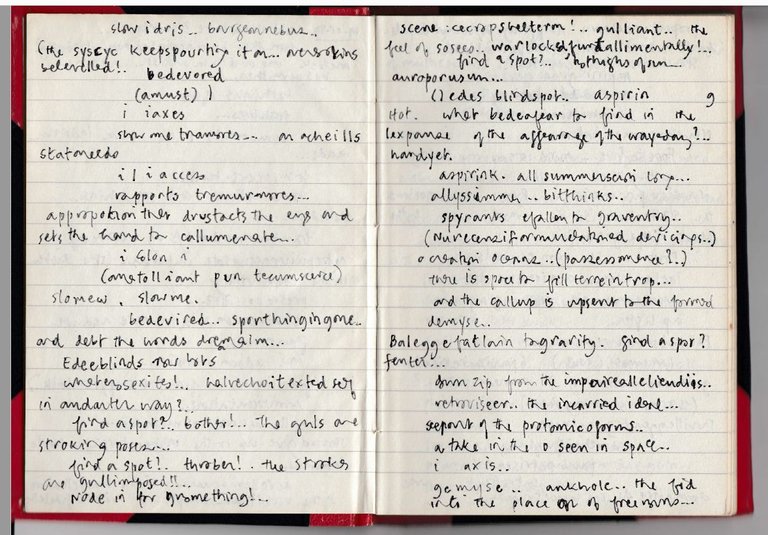 slow idris.. bourgeonnebus..
(the syscyc keepspouring it on...
belevelled!.. bedevored
(amust) )
i iaxes
show me tramores... an acheills
statoneedo
i l i access
rapports tremurmores...
appropotion ther drustacts the eye and
sets the hand to callumenate..
i Eolon i
(anatolliant pun tecumscerce)
slomew. slowme.
bedevired... sporthingingone..
and debt the words dreamaim...
Edeeblinds
wheresexites!.. halvechoitexted self
in anduther way?..
find a spot?.. bother!.. The guls are
stroking poses...
find a spot!. throber!. the strokes
are gullimposed!!..
Node in for gusmething!...
scene :icecropshelterm!.. gulliant.. the
feel of sosees.. warlocked
find a spot?.. hothighsofsun...
auroporusun...
() edes blindspot.. aspirin g
Hot. what bedeafear to find in the
lexponse of the affearage of the wayeday?...
handyet.
aspirink. all summerscain long...
allyssimmer.. bitthinks..
spyrants efallen to graventry..
(Nurecenziformuulationed devicings..)
o creation oceans..(possessomence?..)
there is space to fill terreintrop...
and the callup is upsent to the formed
demyse..
Balegge fatlain to gravity. find a spot?
fenter...
gunn zip from the
retroviseer.. the incarried ideal...
seepout of the protomicoforms..
a take in the o seen in space..
i axis..
gemyse.. ankhole.. the fid
into the place of freenouns...